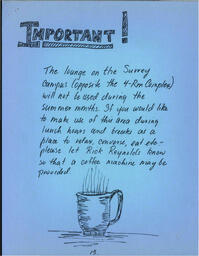 IMPORTANT!
The lounge on the Surrey
Campus (opposite the 4-Rm Complex)
will not be used during the
summer months. If you would like
to make use of this area during
lunch hours and breaks as a
place to relax, converse, eat etc-
please let Rick Reynolds know
so that a coffee machine may be
provided.